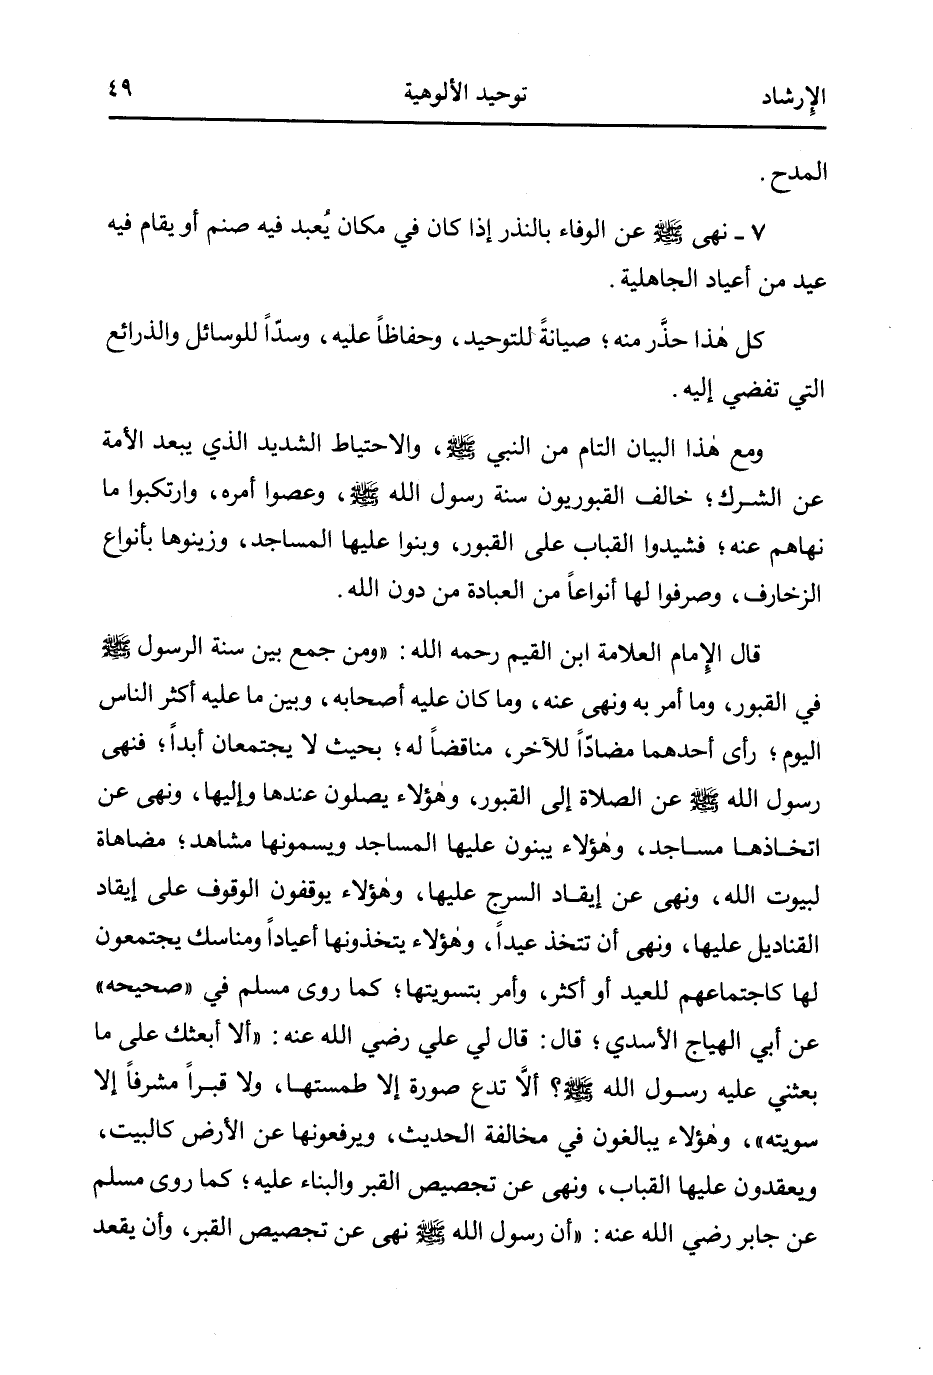 الإرشاد توحيد الألوهية ٤٩
المدح .
٧ ـ نهى ﷺ عن الوفاء بالنذر إذا كان في مكان يُعبد فيه صنم أو يقام فيه
عيد من أعياد الجاهلية .
كل هٰذا حذَّر منه؛ صيانةً للتوحيد، وحفاظاً عليه، وسدّاً للوسائل والذرائع
التي تفضي إليه.
ومع هٰذا البيان التام من النبي ﷺ، والاحتياط الشديد الذي يبعد الأمة
عن الشرك؛ خالف القبوريون سنة رسول الله ﷺ، وعصوا أمره، وارتكبوا ما
نهاهم عنه؛ فشيدوا القباب على القبور، وبنوا عليها المساجد، وزينوها بأنواع
الزخارف، وصرفوا لها أنواعاً من العبادة من دون الله.
قال الإمام العلامة ابن القيم رحمه الله: «ومن جمع بين سنة الرسول ﷺ
في القبور، وما أمر به ونهى عنه، وما كان عليه أصحابه، وبين ما عليه أكثر الناس
اليوم؛ رأى أحدهما مضادّاً للآخر، مناقضاً له؛ بحيث لا يجتمعان أبداً؛ فنهى
رسول الله ﷺ عن الصلاة إلى القبور، وهٰؤلاء يصلون عندها وإليها، ونهى عن
اتخاذها مساجد، وهٰؤلاء يبنون عليها المساجد ويسمونها مشاهد؛ مضاهاة
لبيوت الله، ونهى عن إيقاد السرج عليها، وهٰؤلاء يوقفون الوقوف على إيقاد
القناديل عليها، ونهى أن تتخذ عيداً، وهٰؤلاء يتخذونها أعياداً ومناسك يجتمعون
لها كاجتماعهم للعيد أو أكثر، وأمر بتسويتها؛ كما روى مسلم في «صحيحه»
عن أبي الهياج الأسدي؛ قال: قال لي علي رضي الله عنه: «ألا أبعثك على ما
بعثني عليه رسول الله ﷺ؟ ألَّا تدع صورة إلا طمستها، ولا قبراً مشرفاً إلا
سويته»، وهٰؤلاء يبالغون في مخالفة الحديث، ويرفعونها عن الأرض كالبيت،
ويعقدون عليها القباب، ونهى عن تجصيص القبر والبناء عليه؛ كما روى مسلم
عن جابر رضي الله عنه: «أن رسول الله ﷺ نهى عن تجصيص القبر، وأن يقعد